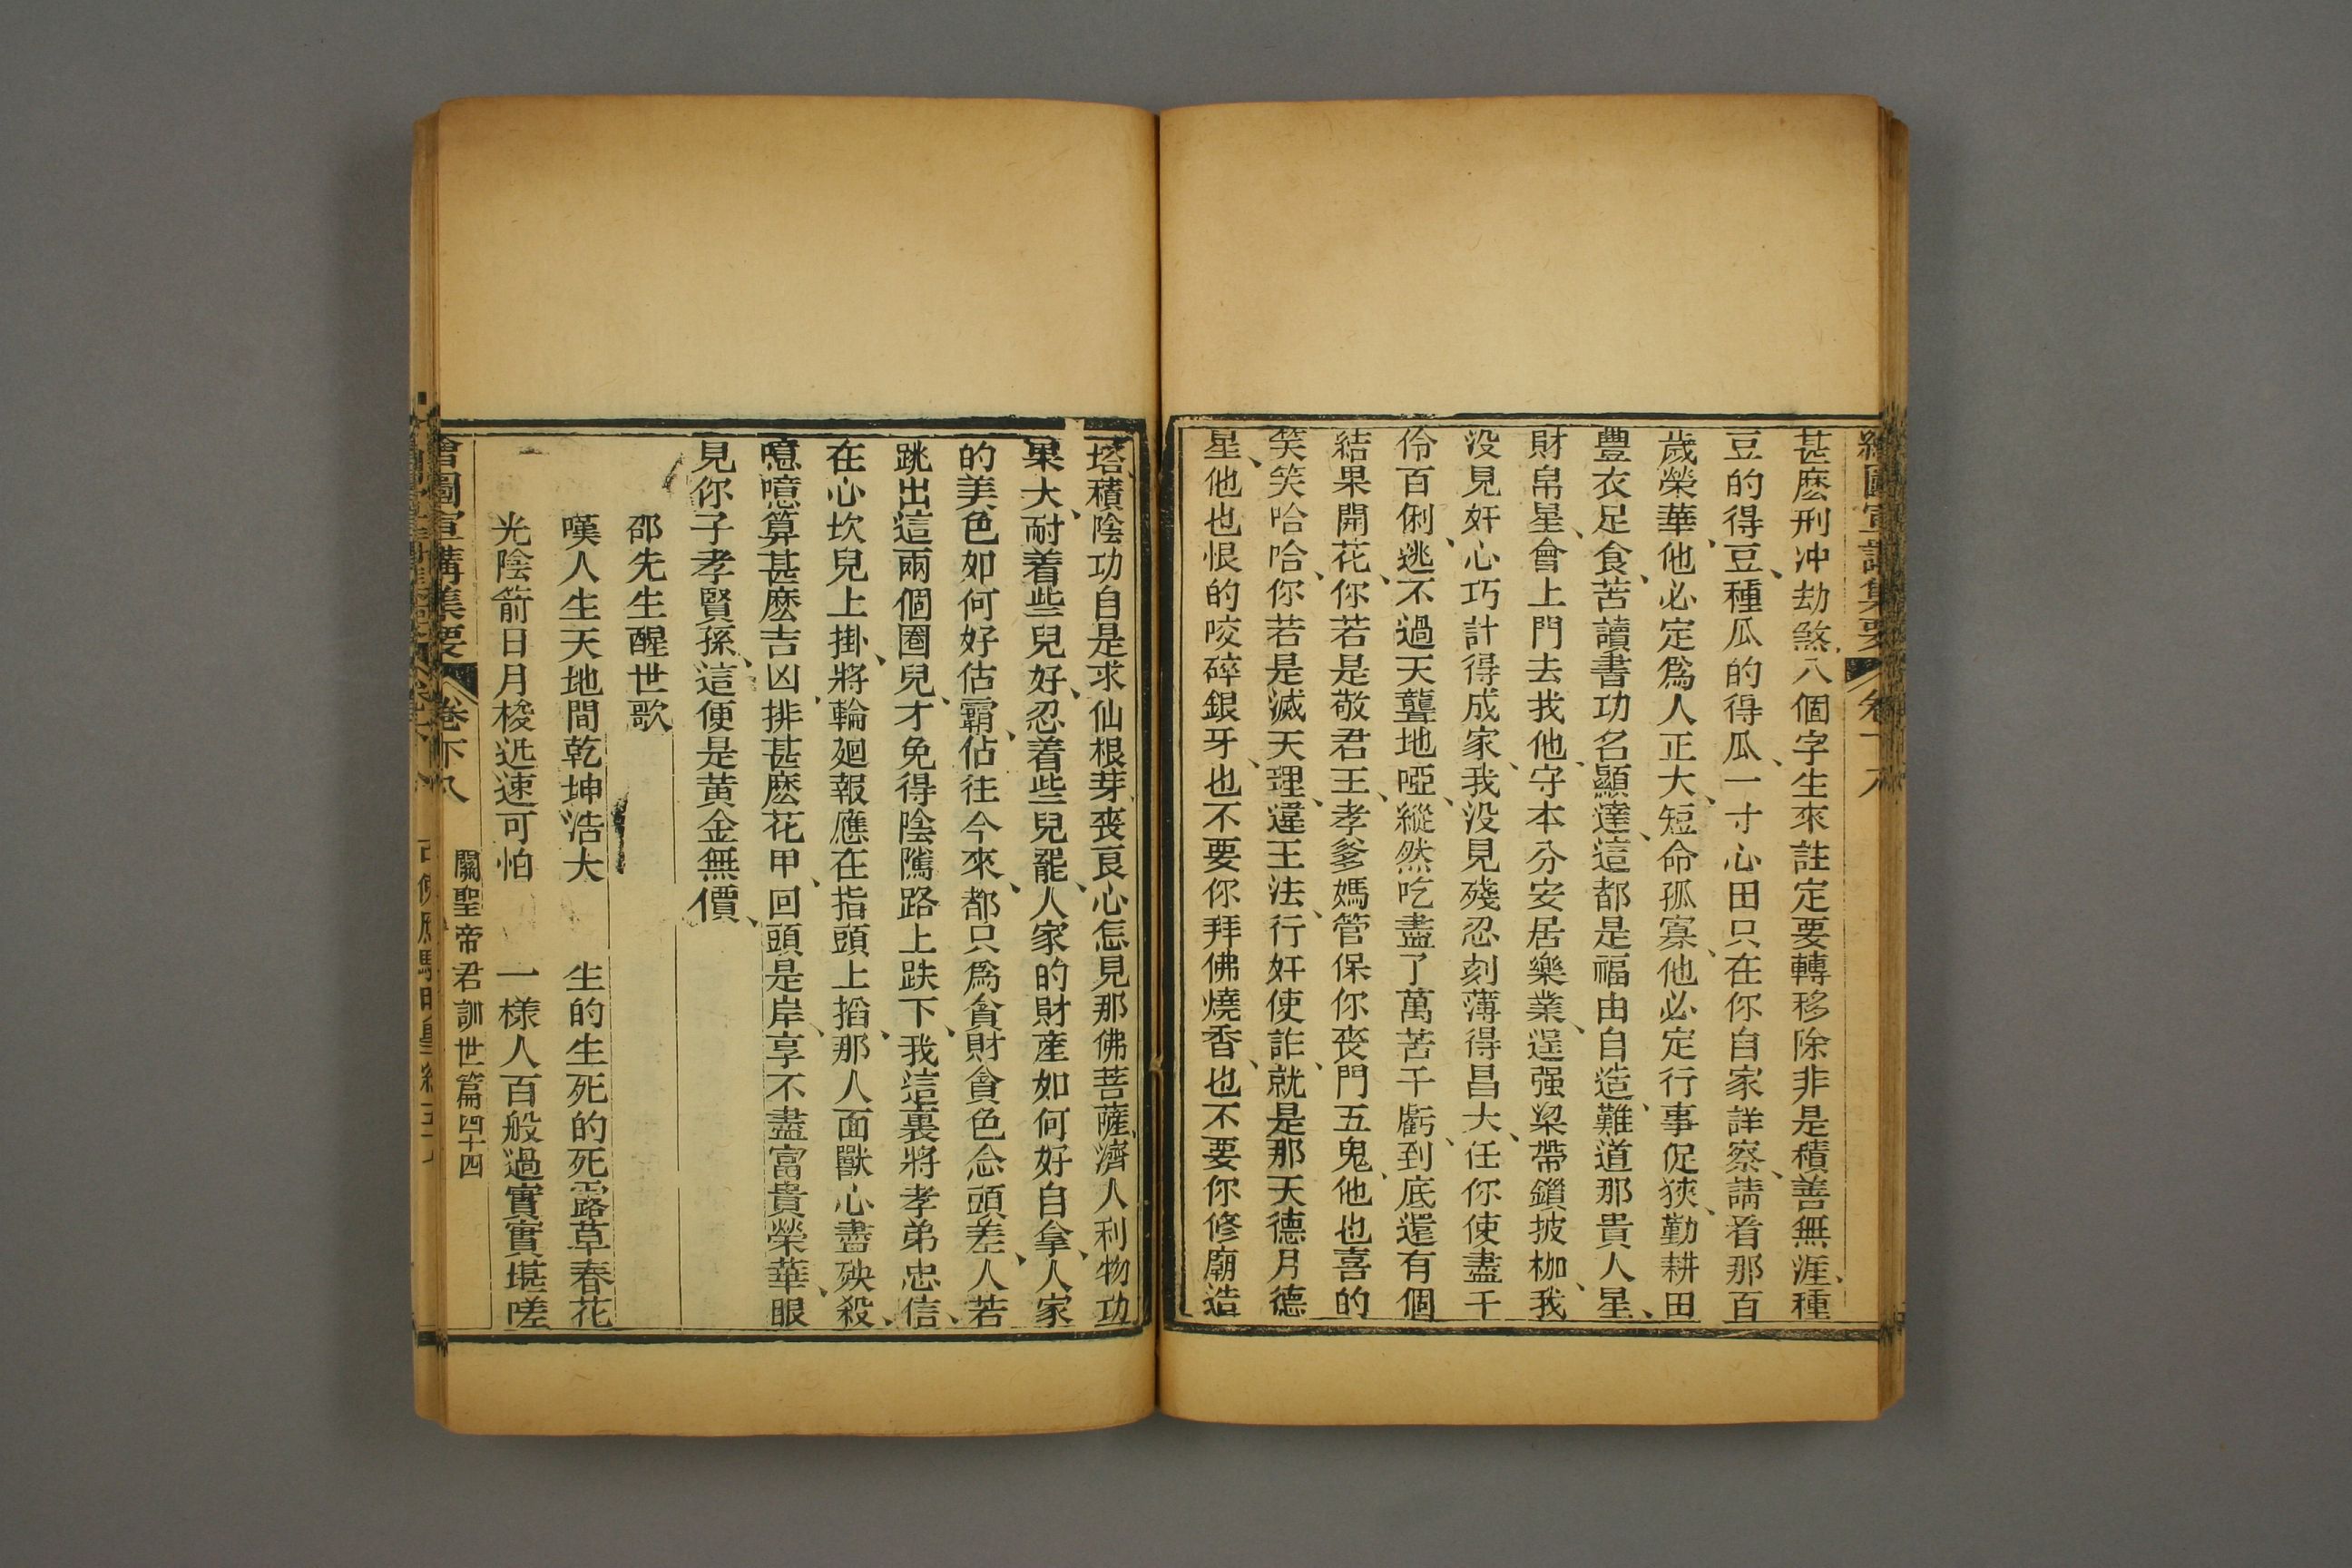 甚麽刑冲劫煞八個字生來註定要轉移除非是積善無涯、種
豆的得豆、種瓜的得瓜、一寸心田只在你自家詳察、請看那百
歲榮華、他必定爲人正大、短命孤寡、他必定行事促狹、勤耕田
豐衣足食、苦讀書功名顯達、這都是福由自造、難道那貴人星、
財帛星、會上門去我他、守本分安居樂業、逞强梁帶鎖披枷、我
没見奸心巧計得成家、我没見殘忍刻薄得昌大、任你使盡千
伶百俐、逃不過天聾地啞、縱然吃盡了萬苦千虧、到底還有個
結果開花、你若是敬君王、孝爹媽管保你喪門五鬼、他也喜的
笑笑哈哈、你若是滅天理、違王法、行奸使詐、就是那天德月德
星、他也恨的咬碎銀牙、也不要你拜佛燒香、也不要你修廟造
塔、積陰功自是求仙根芽、喪良心怎見那佛菩薩、濟人利物功
果大、耐着些兒好、忍着些兒罷、人家的財産如何好自拿、人家
的美色如何好估霸、佔往今來、都只爲貪財貪色念頭差、人若
跳出這兩個圈兒、才免得陰隲路上跌下、我這裏將孝弟忠信、
在心坎兒上掛、將輪廻報應在指頭上搯、那人面獸心盡殃殺、
噫噫算甚麽吉凶、排甚麽花甲、回頭是岸、享不盡富貴榮華、眼
見你子孝賢孫、這便是黄金無價、
邵先生醒世歌
嘆人生天地間乾坤浩大　生的生死的死露草春花
光陰箭日月梭迅速可怕　一樣人百般過實實堪嗟
會圖宣講集要　卷下八　關聖帝君訓世篇四十四